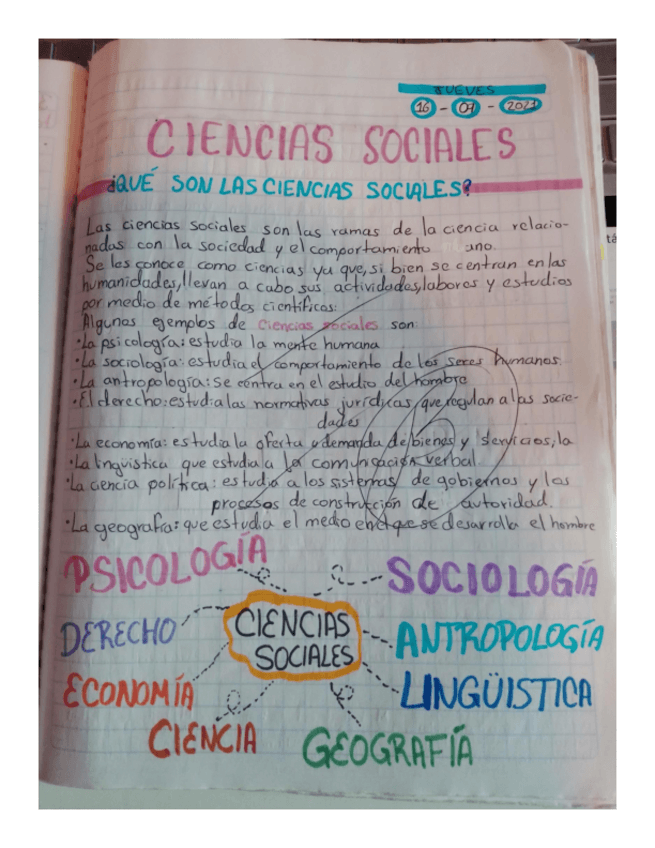 JUEVES
16 - 07 - 2021
CIENCIAS SOCIALES
¿QUÉ SON LAS CIENCIAS SOCIALES?
Las ciencias sociales son las ramas de la ciencia relacio-
nadas con la sociedad y el comportamiento ano.
Se les conoce como ciencias ya que, si bien se centran en las
humanidades, llevan a cabo sus actividades, labores y estudios
por medio de métodos científicos.
Algunos ejemplos de ciencias sociales son:
·La psicología: estudia la mente humana
·La sociología: estudia el comportamiento de los seres humanos.
·La antropología: Se centra en el estudio del hombre
·El derecho: estudia las normativas jurídicas que regulan a las socie-
dades
·La economía: estudia la oferta y demanda de bienes y servicios, la
·La lingüística que estudia a la comunicación verbal.
·La ciencia política: estudia a los sistemas de gobiernos y los
procesos de construcción de autoridad.
·La geografía: que estudia el medio en el que se desarrolla el hombre
PSICOLOGÍA
SOCIOLOGÍA
CIENCIAS
SOCIALES
DERECHO
ANTROPOLOGÍA
ECONOMÍA
LINGÜISTICA
CIENCIA
GEOGRAFÍA